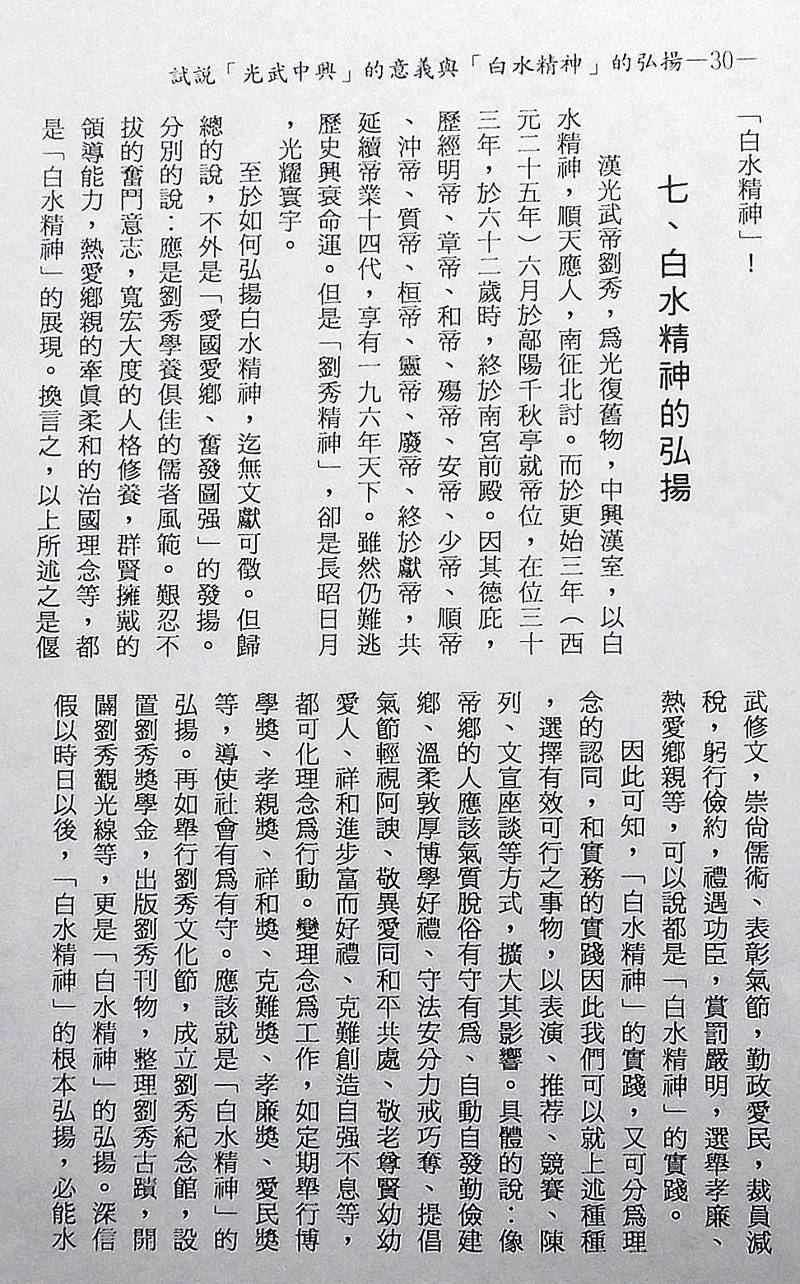 試説「光武中興」的意義與「白水精神」的弘揚—30—
「白水精神」！
七、白水精神的弘揚
漢光武帝劉秀，爲光復舊物，中興漢室，以白
水精神，順天應人，南征北討。而於更始三年（西
元二十五年）六月於鄗陽千秋亭就帝位，在位三十
三年，於六十二歲時，終於南宮前殿。因其德庇，
歷經明帝、章帝、和帝、殤帝、安帝、少帝、順帝
、沖帝、質帝、桓帝、靈帝、廢帝、終於獻帝，共
延續帝業十四代，享有一九六年天下。雖然仍難逃
歷史興衰命運。但是「劉秀精神」，卻是長昭日月
，光耀寰宇。
至於如何弘揚白水精神，迄無文獻可徵。但歸
總的說，不外是「愛國愛鄉、奮發圖强」的發揚。
分別的說：應是劉秀學養俱佳的儒者風範。艱忍不
拔的奮鬥意志，寬宏大度的人格修養，群賢擁戴的
領導能力，熱愛鄉親的牽眞柔和的治國理念等，都
是「白水精神」的展現。換言之，以上所述之是偃
武修文，崇尙儒術、表彰氣節，勤政愛民，裁員減
稅，躬行儉約，禮遇功臣，賞罰嚴明，選舉孝廉、
熱愛鄉親等，可以說都是「白水精神」的實踐。
因此可知，「白水精神」的實踐，又可分爲理
念的認同，和實務的實踐因此我們可以就上述種種
，選擇有效可行之事物，以表演、推荐、競賽、陳
列、文宣座談等方式，擴大其影響。具體的說：像
帝鄉的人應該氣質脫俗有守有爲、自動自發勤儉建
鄉、溫柔敦厚博學好禮、守法安分力戒巧奪、提倡
氣節輕視阿諛、敬異愛同和平共處、敬老尊賢幼幼
愛人、祥和進步富而好禮、克難創造自强不息等，
都可化理念爲行動。變理念爲工作，如定期舉行博
學獎、孝親獎、祥和獎、克難獎、孝廉獎、愛民獎
等，導使社會有爲有守。應該就是「白水精神」的
弘揚。再如舉行劉秀文化節，成立劉秀紀念館，設
置劉秀獎學金，出版劉秀刊物，整理劉秀古蹟，開
闢劉秀觀光線等，更是「白水精神」的弘揚。深信
假以時日以後，「白水精神」的根本弘揚，必能水